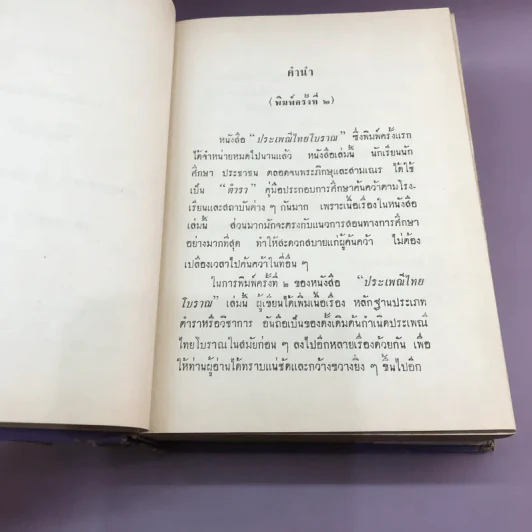 คำนำ
(พิมพ์ครั้งที่ ๒)
หนังสือ "ประเพณีไทยโบราณ" ซึ่งพิมพ์ครั้งแรก
ได้จำหน่ายหมดไปนานแล้ว หนังสือเล่มนี้ นักเรียนนัก
ศึกษา ประชาชน ตลอดจนพระภิกษุและสามเณร ได้ใช้
เป็น "ตำรา" คู่มือประกอบการศึกษาค้นคว้าตามโรง-
เรียนและสถาบันต่าง ๆ กันมาก เพราะเนื้อเรื่องในหนังสือ
เล่มนี้ ส่วนมากมักจะตรงกับแนวการสอนทางการศึกษา
อย่างมากที่สุด ทำให้สะดวกสบายแก่ผู้ค้นคว้า ไม่ต้อง
เปลืองเวลาไปค้นคว้าในที่อื่น ๆ
ในการพิมพ์ครั้งที่ ๒ ของหนังสือ "ประเพณีไทย
โบราณ" เล่มนี้ ผู้เขียนได้เพิ่มเนื้อเรื่อง หลักฐานประเภท
ตำราหรือวิชาการ อันถือเป็นของดั้งเดิมต้นกำเนิดประเพณี
ไทยโบราณในสมัยก่อน ๆ ลงไปอีกหลายเรื่องด้วยกัน เพื่อ
ให้ท่านผู้อ่านได้ทราบแน่ชัดและกว้างขวางยิ่ง ๆ ขึ้นไปอีก